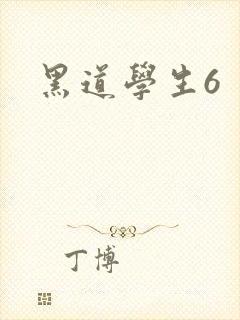 黑道學生6
丁博